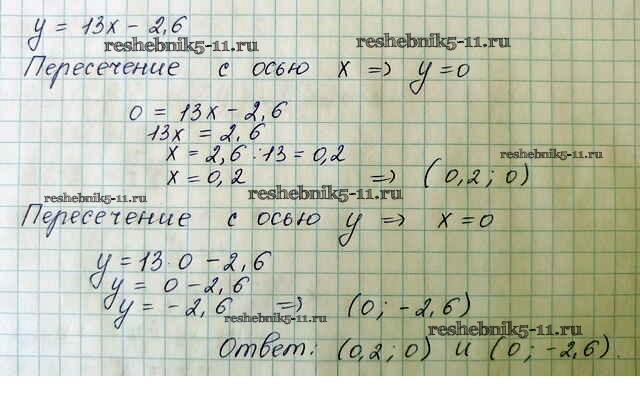 y = 13x - 2,6
reshebnik5-11.ru
reshebnik5-11.ru
Пересечение с осью x => y=0
0 = 13x - 2,6
13x = 2,6
x = 2,6 : 13 = 0,2
reshebnik5-11.ru
x = 0,2 => (0,2; 0)
reshebnik5-11.ru
reshebnik5-11.ru
Пересечение с осью y => x=0
y = 13·0 - 2,6
y = 0 - 2,6
y = -2,6 => (0; -2,6)
reshebnik5-11.ru
reshebnik5-11.ru
Ответ: (0,2; 0) и (0; -2,6).